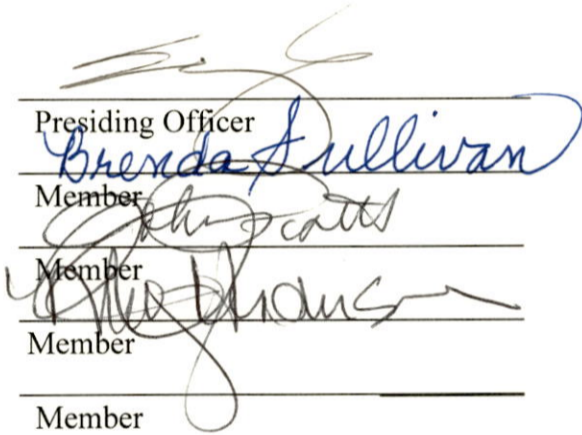 Presiding Officer
Brenda Sullivan
Member
John Scotts
Member
Anderson
Member
Member